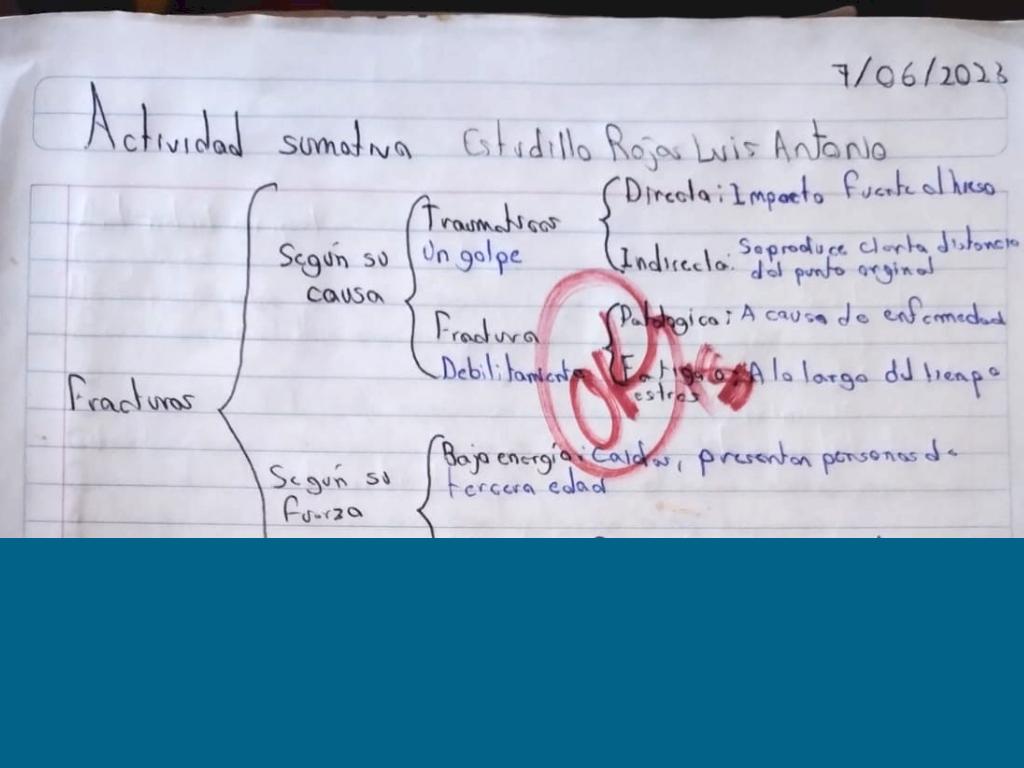 7/06/2023
Actividad sumativa Estudillo Rojas Luis Antonio
Fracturas
Según su causa
Traumaticas
Un golpe
Directa: Impacto fuerte al hueso
Indirecta: Se produce cierta distancia
del punto orginal
Fractura
Debilitamiento
Patologica: A causa de enfermedad
Fatiga o estres: A lo largo del tiempo
Según su
fuerza
Baja energía: Caidas, presentan personas de
tercera edad